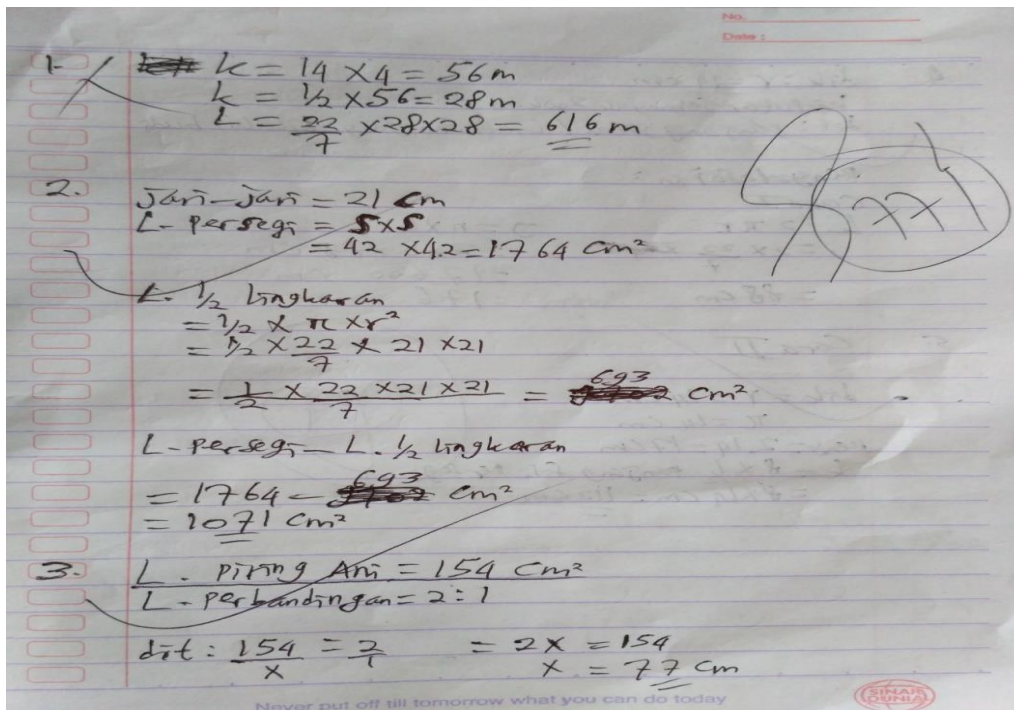 No.
Date :
1. K = 14 × 4 = 56 m
k = 1/2 × 56 = 28 m
L = 22/7 × 28 × 28 = 616 m
2. jari-jari = 21 cm
L. Persegi = S×S
= 42 × 42 = 1764 cm²
L. 1/2 lingkaran
= 1/2 × π × r²
= 1/2 × 22/7 × 21 × 21
= 1/2 × 22 × 21 × 21 / 7 = 693 cm²
L. Persegi – L. 1/2 lingkaran
= 1764 – 693 cm²
= 1071 cm²
3. L. Piring Ani = 154 cm²
L. perbandingan = 2 : 1
dit : 154/x = 2/1 = 2x = 154
x = 77 cm
Never put off till tomorrow what you can do today
SINAR DUNIA